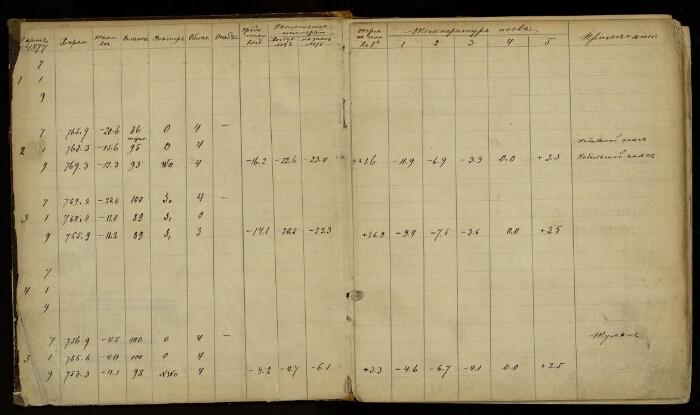 Марта 1877 Баром. Влажн. Вѣтеръ Облач. Осадки Температура почвы Примѣчанія
1 2 3 4 5
7
1 1
9
7 768.9 -20.6 86 0 4 —
2 1 768.3 -15.6 95 0 4 Небольшой иней
9 769.3 -12.3 93 W0 4 -16.2 -22.6 -23.4 +1.6 -11.9 -6.9 -3.3 0.0 +3.5 Небольшой иней
7 769.2 -22.0 100 S0 4 —
3 1 768.0 -11.0 89 S1 0
9 765.9 -11.2 89 S1 3 -14.1 -20.5 -23.3 +26.3 -9.4 -7.5 -3.6 0.0 +3.5
7
4 1
9
7 756.9 -4.5 100 0 4 — Туманъ
5 1 755.6 -4.0 100 0 4
9 753.3 -4.1 98 NW0 4 -4.2 -4.7 -6.1 +3.3 -4.6 -5.7 -4.1 0.0 +3.5